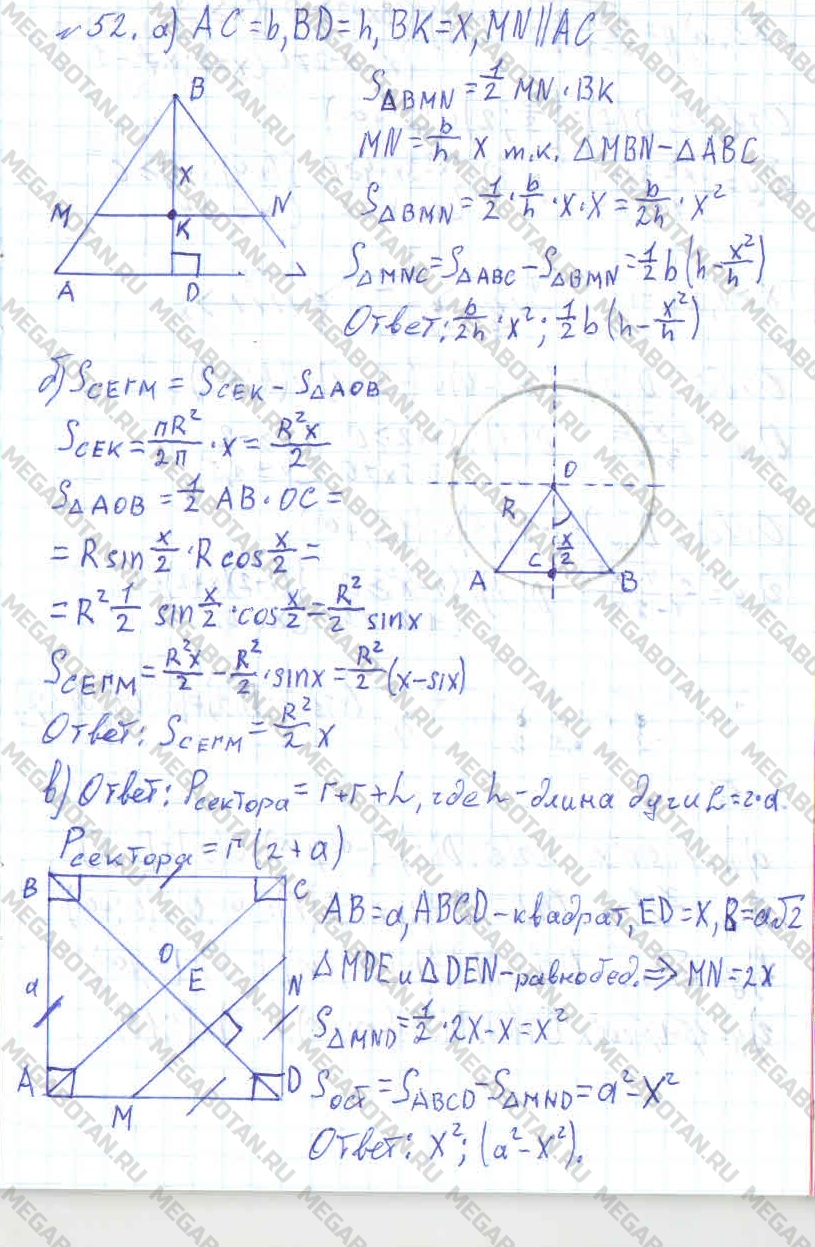 №52. а) AC=b, BD=h, BK=x, MN||AC
B
M
x
N
K
A
D
S△BMN = 1/2 MN·BK
MN = b/h x т.к. △MBN~△ABC
S△BMN = 1/2 · b/h · x·x = b/2h · x²
S△MNC = S△ABC - S△BMN = 1/2 b(h - x²/h)
Ответ: b/2h · x²; 1/2 b(h - x²/h)
б) Sсегм = Sсек - S△AOB
Sсек = πR²/2π · x = R²x/2
S△AOB = 1/2 AB·OC =
= R sin x/2 · R cos x/2 =
= R² 1/2 sin x/2 · cos x/2 = R²/2 sinx
Sсегм = R²x/2 - R²/2 · sinx = R²/2 (x-six)
Ответ: Sсегм = R²/2 x
O
R
x/2
C
A
B
в) Ответ: Pсектора = r+r+L, где L - длина дуги L=r·a.
Pсектора = r(2+a)
B
C
O
E
a
N
A
D
M
AB=a, ABCD-квадрат, ED=x, B=a√2
△MDE и △DEN-равнобед. => MN=2x
S△MND = 1/2 · 2x-x = x²
Sост = SABCD - S△MND = a²-x²
Ответ: x²; (a²-x²).
MEGABOTAN.RU